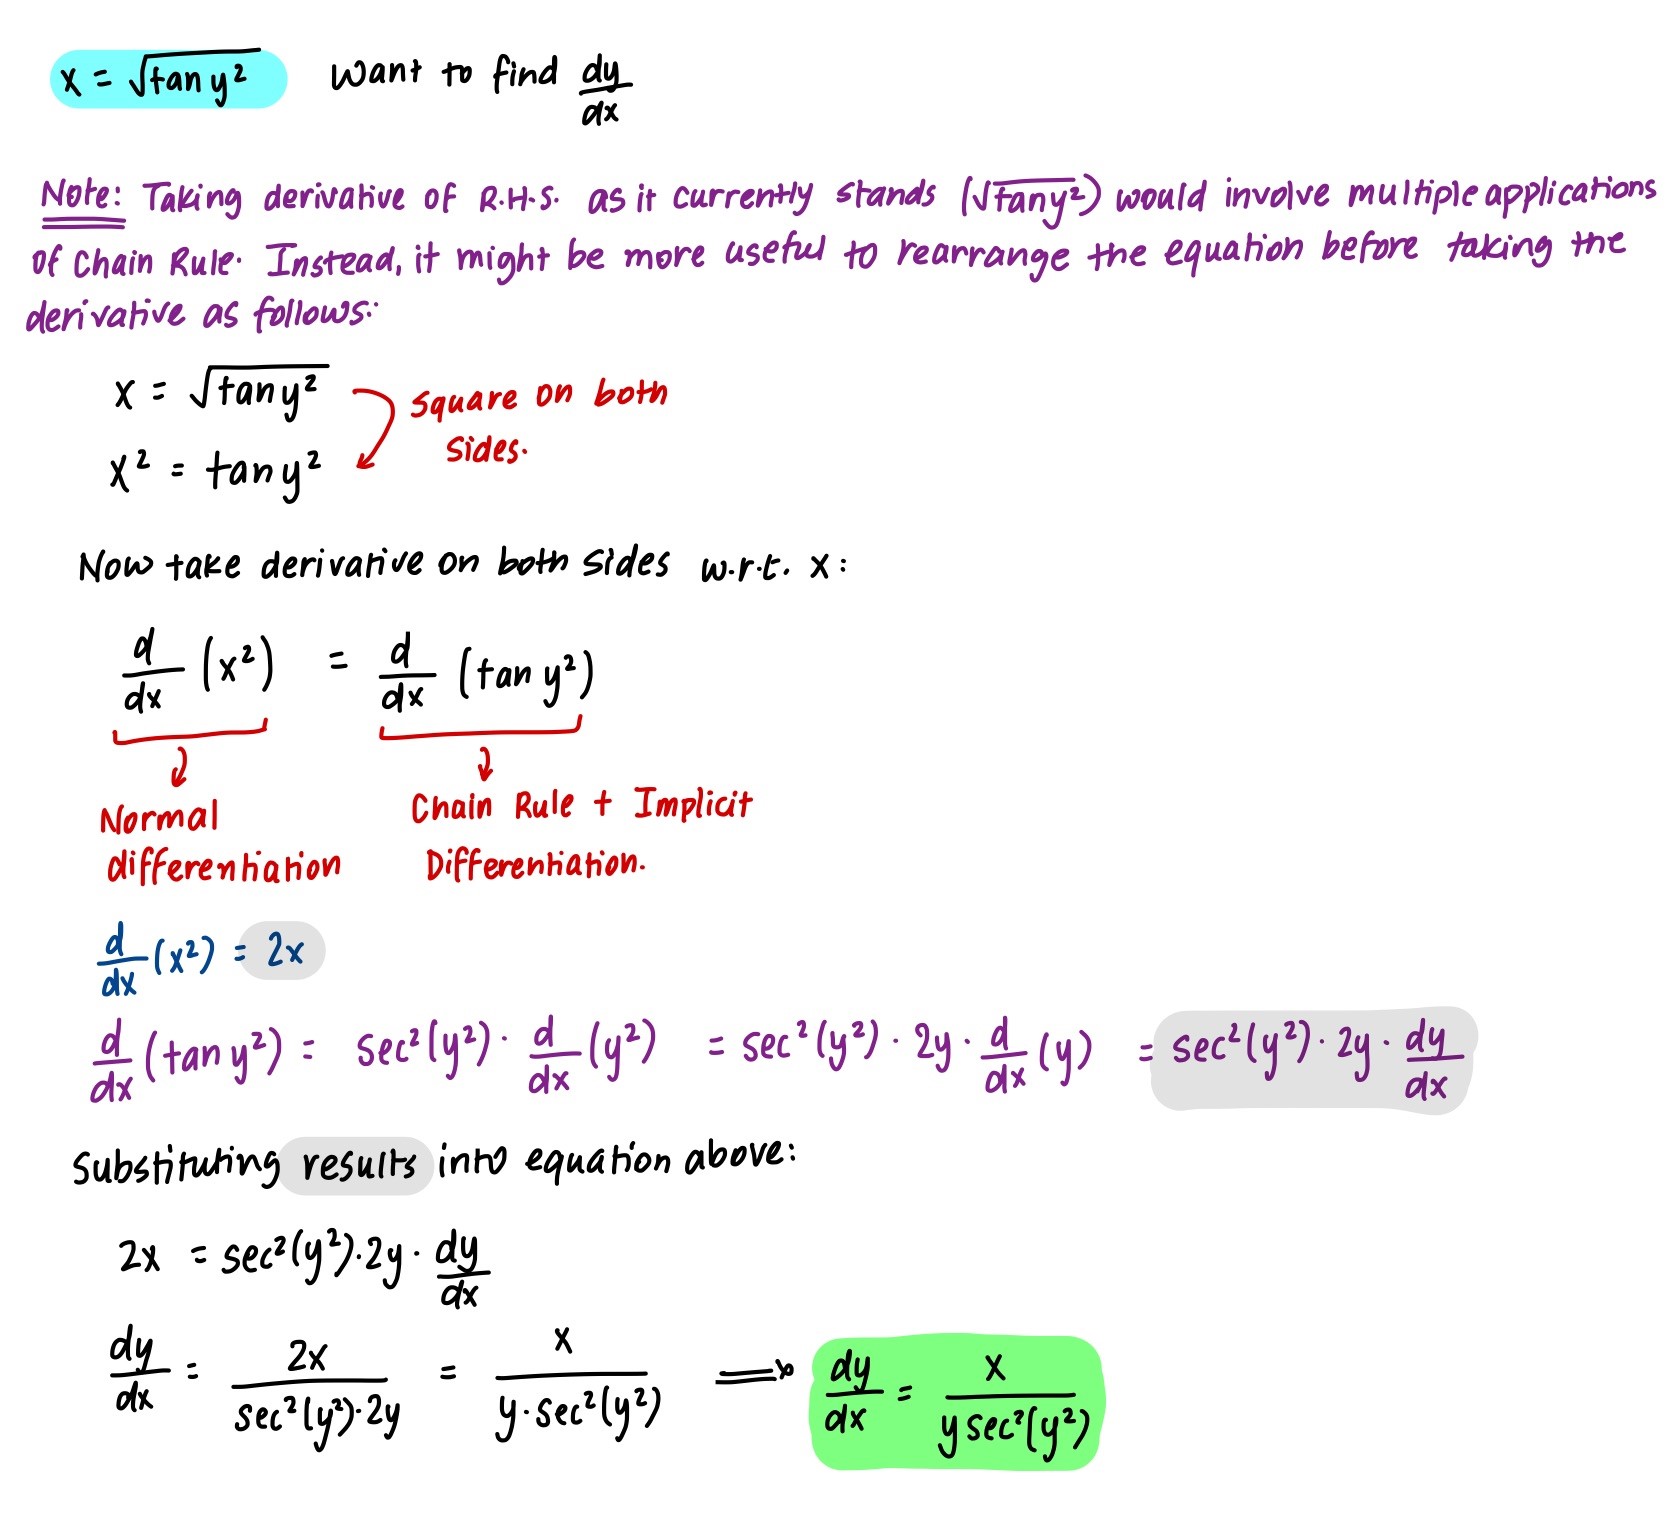 x = √(tan y²) Want to find dy/dx
Note: Taking derivative of R.H.S. as it currently stands (√(tan y²)) would involve multiple applications
of Chain Rule. Instead, it might be more useful to rearrange the equation before taking the
derivative as follows:
x = √(tan y²) Square on both
Sides.
x² = tan y²
Now take derivative on both sides w.r.t. x:
d/dx (x²) = d/dx (tan y²)
Normal
differentiation
Chain Rule + Implicit
Differentiation.
d/dx (x²) = 2x
d/dx (tan y²) = sec²(y²) · d/dx (y²) = sec²(y²) · 2y · d/dx (y) = sec²(y²) · 2y · dy/dx
Substituting results into equation above:
2x = sec²(y²) · 2y · dy/dx
dy/dx = 2x/(sec²(y²) · 2y) = x/(y · sec²(y²)) ⟹ dy/dx = x/(y sec²(y²))